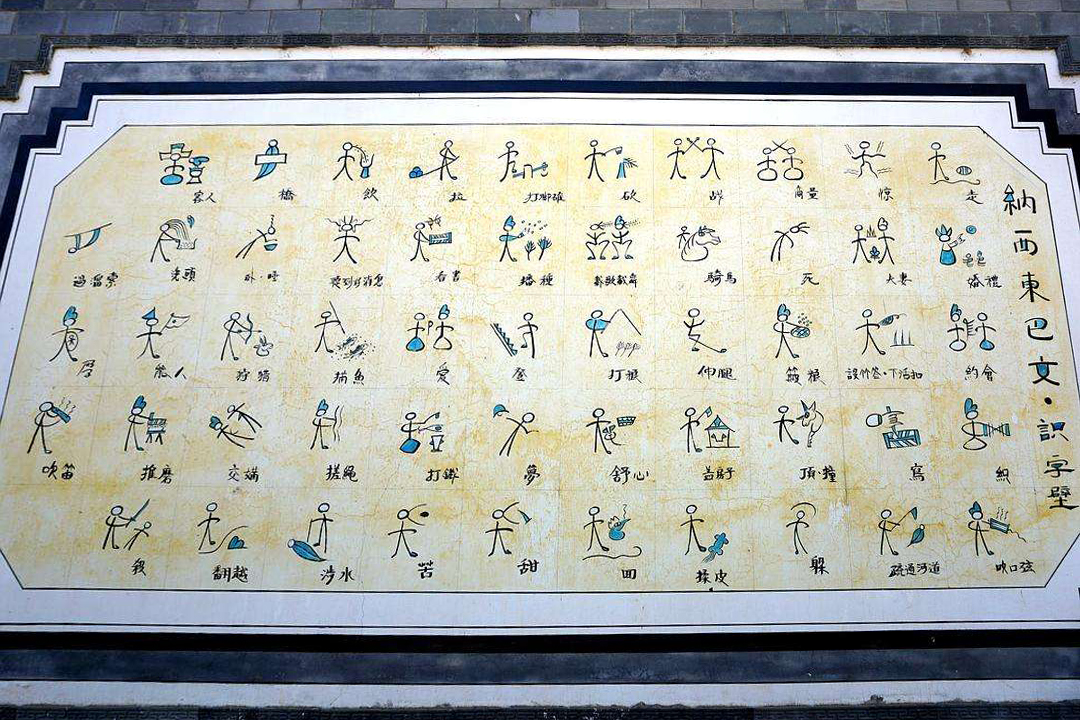 納西東巴文·識字壁
客人 橋 飲 拉 打腳碓 砍 战 商量 惊 走
過溜索 洗頭 卧·睡 聽到好消息 看書 播種 載歌載舞 騎馬 死 夫妻 婚禮
孕 能人 狩猎 捕魚 愛 登 打 伸腿 簸糧 設竹签·下活扣 約會
吹笛 推磨 交媾 搓繩 打鐵 夢 舒心 盖房子 頂·撞 寫 織
殺 翻越 涉水 苦 甜 回 揉皮 躲 疏通河道 吹口弦